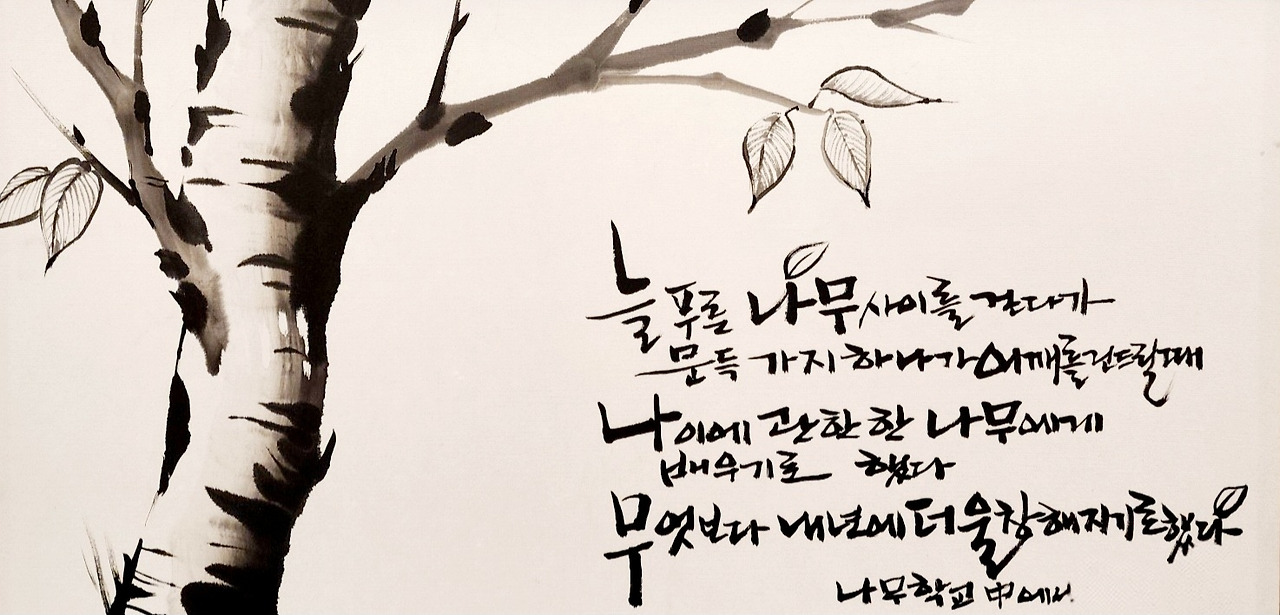 늘 푸른 나무 사이를 걷다가
문득 가지 하나가 어깨를 건드릴 때
나이에 관한 한 나무에게
배우기로 했다
무엇보다 내년에 더 울창해지기로 했다
나무학교 中에서.